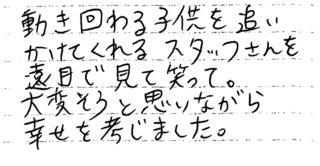 動き回わる子供を追い
かけてくれる スタッフさんを
遠目で見て笑って。
大変そうと思いながら
幸せを考じました。